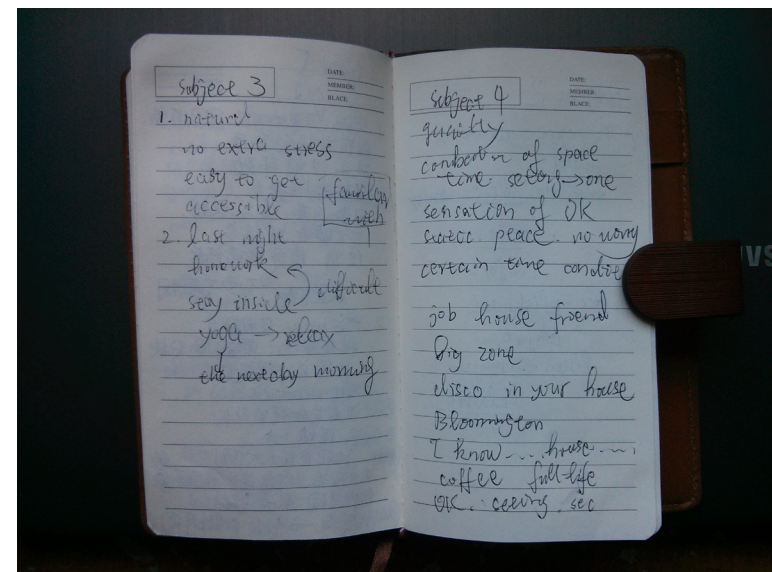 Subject 3
DATE:
MEMBER:
BLACE:
1. natural
no extra stress
easy to get
accessible
familar
with
2. last night
homework
difficult
stay inside
yoga → relax
the next day morning
Subject 4
DATE:
MEMBER:
BLACE:
of space
time. setting → one
sensation of OK
peace. no worry
certain time
job house friend
big zone
disco in your house
Bloomington
I know .... house ....
coffee full-life
OK. seeing. sec
VS